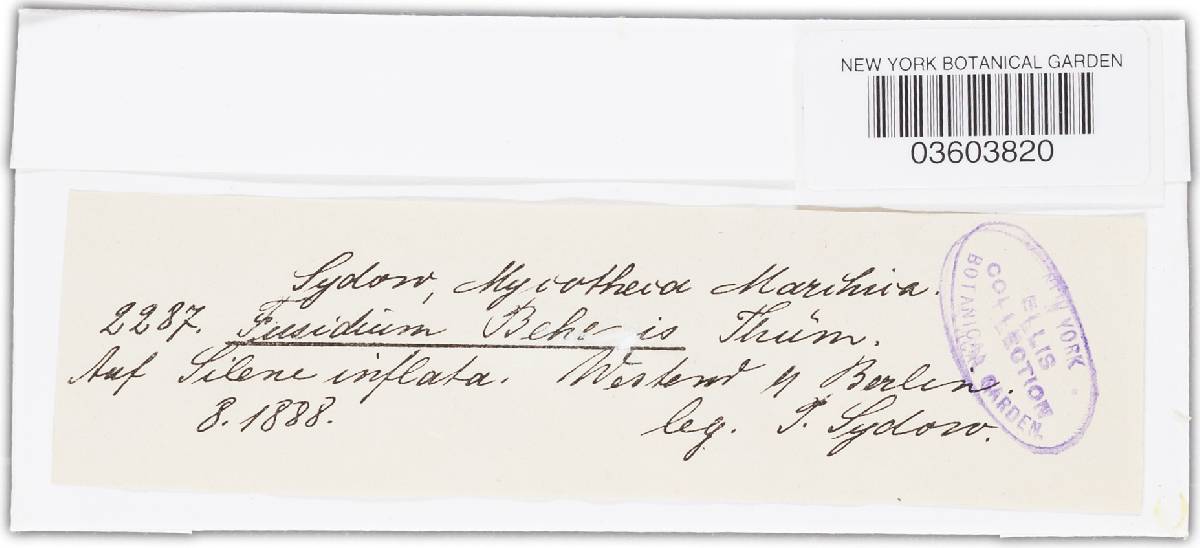 NEW YORK BOTANICAL GARDEN
03603820
Sydow, Mycotheca Marchica.
2287. Fusidium Behenis Thüm.
Auf Silene inflata. Westend b. Berlin.
8. 1888. leg. P. Sydow.
NEW YORK
ELLIS
COLLECTION
BOTANICAL GARDEN.